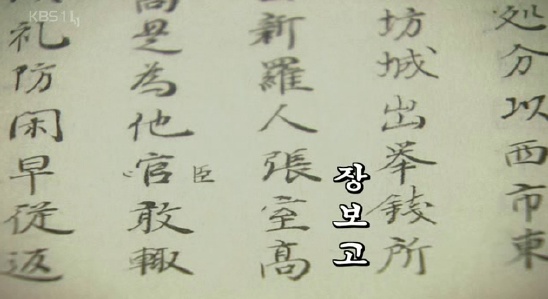 KBS1
処分以西市東
坊城出举錢所
장보고
新羅人張室髙
是為他官敢輙
臣
礼防閑早従返